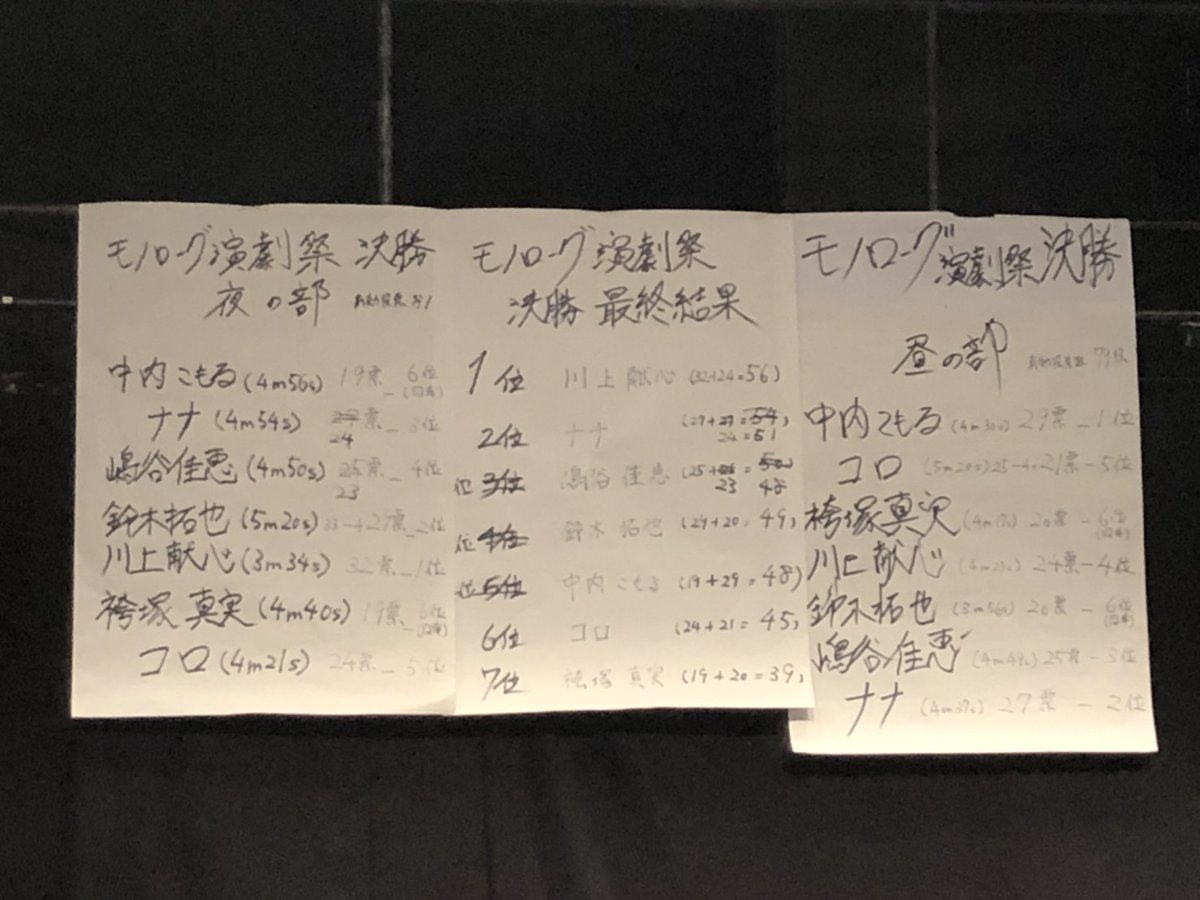 モノローグ演劇祭 決勝
夜の部
中内こもる (4m56s) 19票 - 6位
ナナ (4m54s) 27票 - 3位
24
嶋谷佳恵 (4m50s) 25票 - 4位
23
鈴木拓也 (5m20s) 33-4 29票 - 2位
川上献心 (3m34s) 32票 - 1位
袴塚真実 (4m40s) 19票 - 6位
コロ (4m21s) 24票 - 5位
モノローグ演劇祭
決勝 最終結果
1位 川上献心 (32+24=56)
2位 ナナ (27+27=54)
24=51
位 3位 嶋谷佳恵 (25+
23 48
位 4位 鈴木拓也 (29+20=49)
位 5位 中内こもる (19+29=48)
6位 コロ (24+21=45)
7位 袴塚真実 (19+20=39)
モノローグ演劇祭決勝
昼の部
中内こもる 29票 - 1位
コロ (5m20s) 25-4=21票 - 5位
袴塚真実 20票 - 6位
川上献心 24票 - 4位
鈴木拓也 (3m56s) 20票 - 6位
嶋谷佳恵 (4m49s) 25票 - 3位
ナナ (4m37s) 27票 - 2位